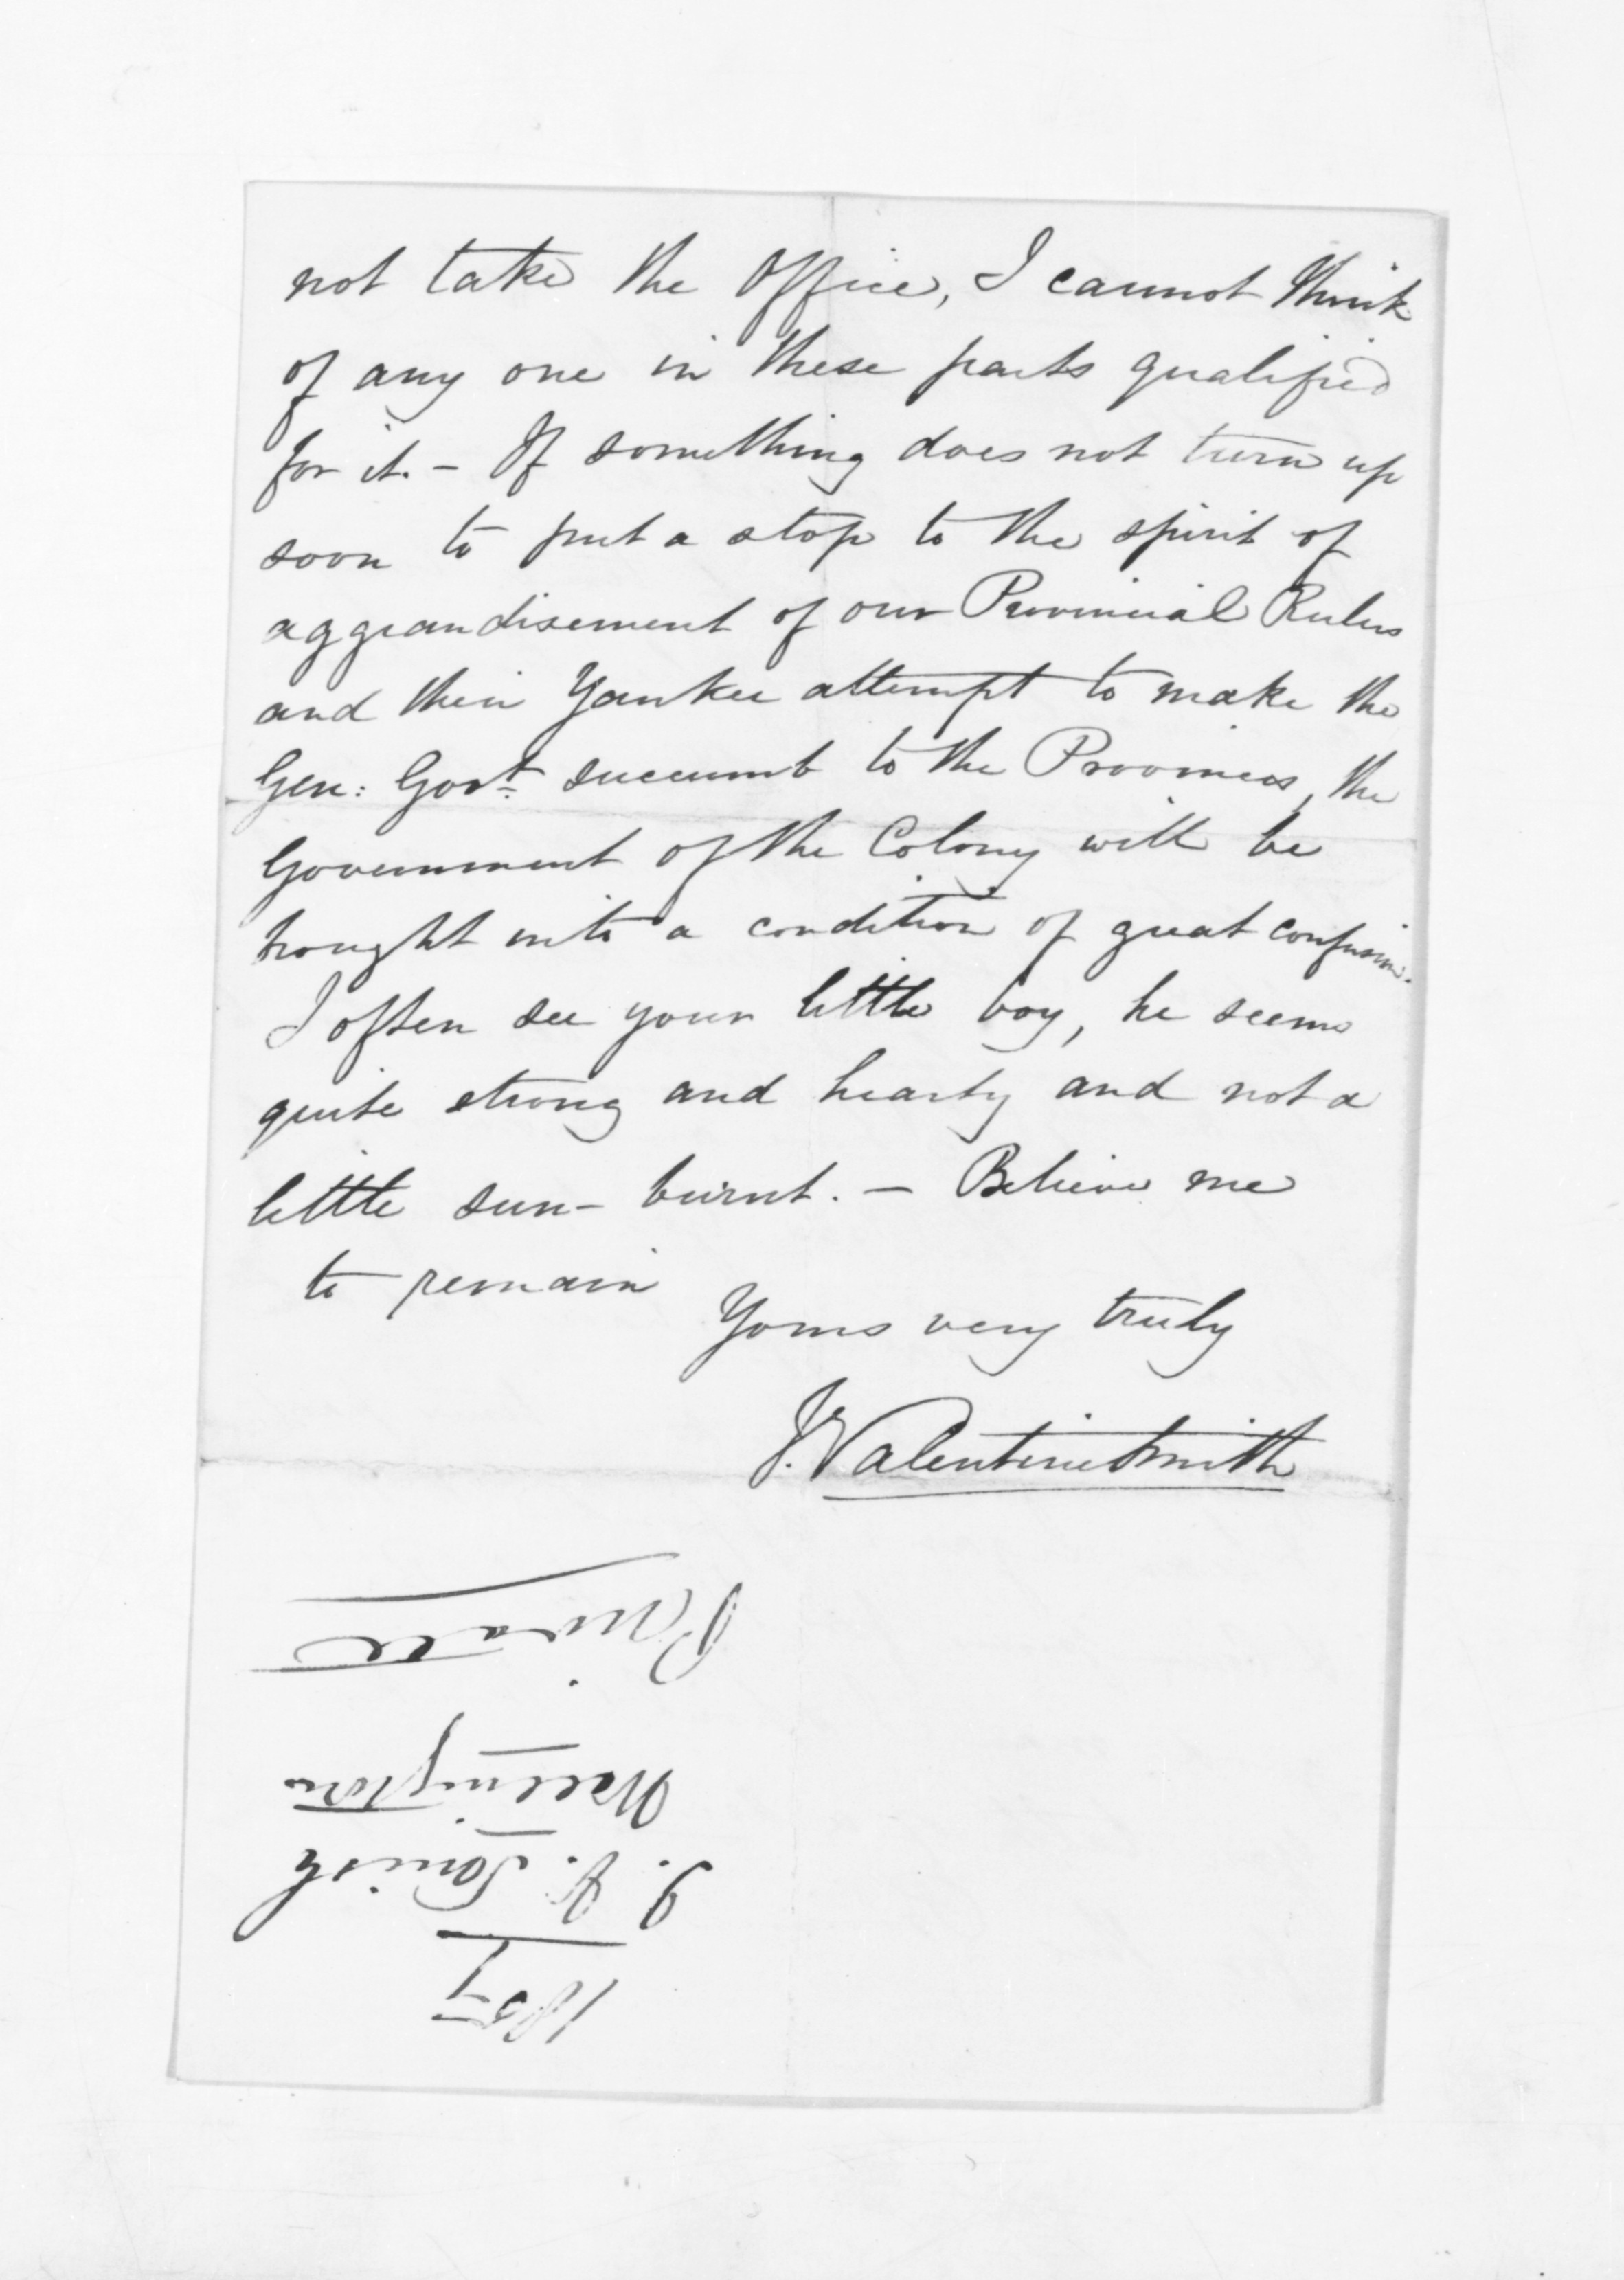 not take the Office, I cannot think
of any one in these parts qualified
for it. - If something does not turn up
soon to put a stop to the spirit of
aggrandisement of our Provincial Rulers
and their Yankee attempt to make the
Gen: Govt. succumb to the Provinces, the
Government of the Colony will be
brought into a condition of great confusion.
I often see your little boy, he seems
quite strong and hearty and not a
little sun-burnt. - Believe me
to remain
Yours very truly
J. Valentine Smith
1857
Wellington
Private